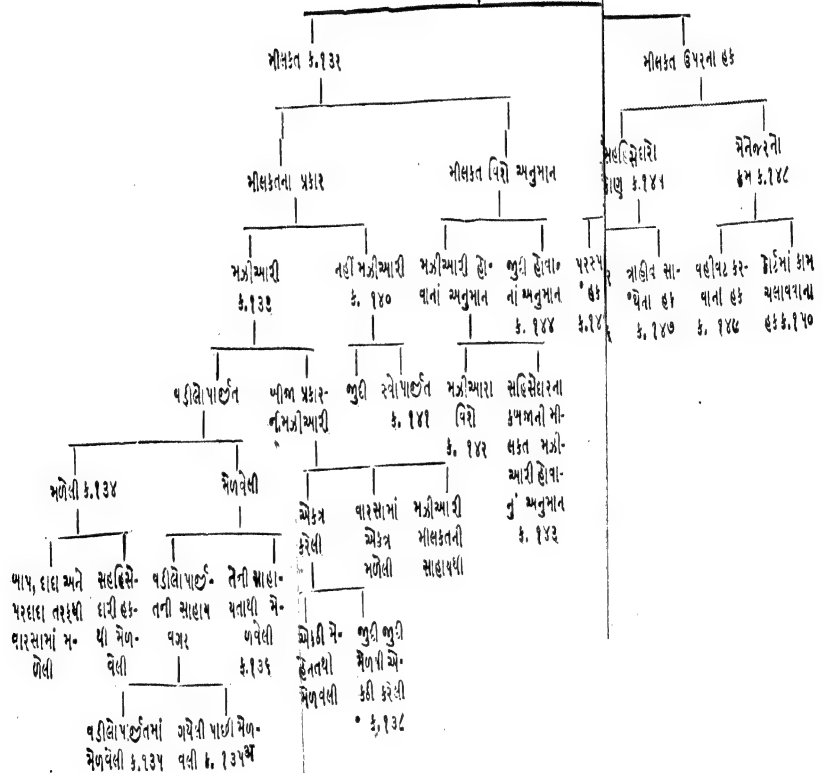 મીલકત ક.૧૩૨
મીલકત ઉપરના હક
મીલકતના પ્રકાર
મીલકત વિશે અનુમાન
સહહિસેદારો
કોણ ક.૧૪૫
મેનેજરનો
ક્રમ ક.૧૪૮
મઝીઆરી
ક.૧૩૩
નહીં મઝીઆરી
ક. ૧૪૦
મઝીઆરી હો-
વાનાં અનુમાન
જુદી હોવા-
નાં અનુમાન
ક. ૧૪૪
પરસ્પર
હક
ક.૧૪૬
ત્રાહીત સા-
થેના હક
ક. ૧૪૭
વહીવટ કર-
વાના હક
ક. ૧૪૯
કોર્ટમાં કામ
ચલાવવાના
હક ક.૧૫૦
વડીલોપાર્જીત
બીજા પ્રકાર-
ની મઝીઆરી
જુદી
સ્વોપાર્જીત
ક. ૧૪૧
મઝીઆરા
વિશે
ક. ૧૪૨
સહિસેદારના
કબજાની મી-
લકત મઝી-
આરી હોવા-
નું અનુમાન
ક. ૧૪૩
મળેલી ક.૧૩૪
મેળવેલી
એકત્ર
કરેલી
વારસામાં
એકત્ર
મળેલી
મઝીઆરી
મીલકતની
સાહાયથી
બાપ, દાદા અને
પરદાદા તરફથી
વારસામાં મ-
ળેલી
સહહિસે-
દારી હક-
થી મેળ-
વેલી
વડીલોપાર્જી-
તની સાહાય
વગર
તેની સાહા-
યતાથી મે-
ળવેલી
ક.૧૩૬
એકઠી મે-
હેનતથી
મેળવેલી
જુદી જુદી
મેળવી એ-
કઠી કરેલી
ક.૧૩૮
વડીલોપાર્જીતમાં
મેળવેલી ક.૧૩૫
ગયેલી પાછી મેળ-
વેલી ક. ૧૩૫અ